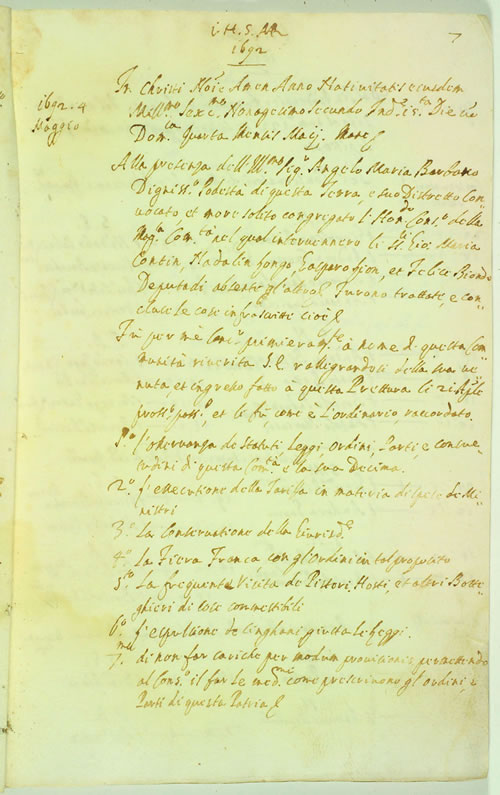 1692
7
1692. 4
Maggio
In Christi No.e Amen Anno Nativitatis eiusdem
Mill.mo Sexc.mo Nonagesimo Secundo Ind.e 15.ta Die
Dom.ca Quarta Mensis Maij.
Alla presenza dell'Ill.mo Sig.r Angelo Maria Barbaro
Digniss.o Podestà di questa Terra, e suo Distretto Con
uocato et more solito congregato l'Hon.do Cons.o della
Mag.ca Com.tà nel qual interuennero li SS.ri Gio: Maria
Contin, Nadalin Longo, Gasparo et Felice Biondo
Deputadi absente gl'altro furono trattate, e con
cluse le cose infrascritte cioè
Fù per mè primieram.te à nome di questa Com
munità riuerita S.E. rallegrandosi della sua ue
nuta et ingresso fatto à questa Prettura li
pross.o pass.o, et le fù, come è l'ordinario, raccordato.
P.o l'osservanza de Statuti, Leggi, ordini, Parti, e consue
tudini di questa Com.tà e la sua Decima.
2.o l'essecutione della Tariffa in materia di spese de Mi
nistri
3.o La Conseruatione della Giurisd.e
4.o La Fiera Franca, con gl'ordini in tal proposito
5.to La frequente Visita de Pistori, Hosti, et altri Botte
ghieri di cose comestibili
6.o l'espulsione de Cinghani giusta le Leggi.
7.mo di non far cariche per modum prouisionis permettendo
al Cons.o il far le med.me come prescriuono gl'ordini e
Parti di questa Patria